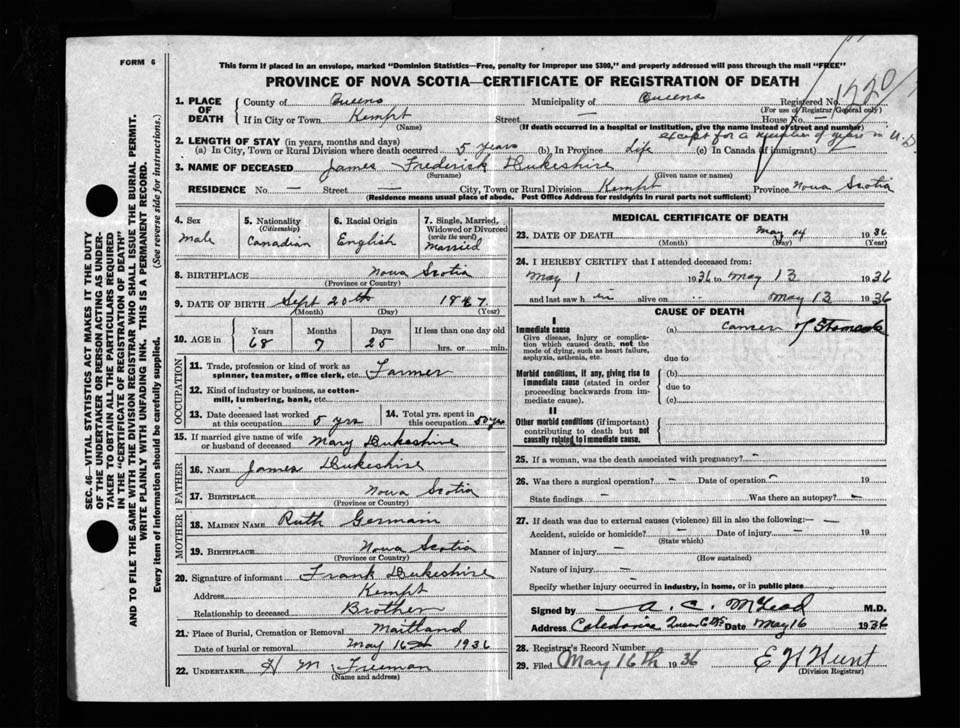 FORM 6
This form if placed in an envelope, marked "Dominion Statistics—Free, penalty for improper use $300," and properly addressed will pass through the mail "FREE"
PROVINCE OF NOVA SCOTIA—CERTIFICATE OF REGISTRATION OF DEATH
SEC. 46—VITAL STATISTICS ACT MAKES IT THE DUTY
OF THE UNDERTAKER OR PERSON ACTING AS UNDER-
TAKER TO OBTAIN ALL THE PARTICULARS REQUIRED
IN THE "CERTIFICATE OF REGISTRATION OF DEATH"
AND TO FILE THE SAME WITH THE DIVISION REGISTRAR WHO SHALL ISSUE THE BURIAL PERMIT.
WRITE PLAINLY WITH UNFADING INK. THIS IS A PERMANENT RECORD.
Every item of information should be carefully supplied. (See reverse side for instructions.)
1. PLACE OF DEATH County of Queens Municipality of Queens Registered No. 1220
(For use of Registrar General only)
If in City or Town Kempt Street — House No. —
(Name) (If death occurred in a hospital or institution, give the name instead of street and number)
2. LENGTH OF STAY (in years, months and days) except for a number of years in U.S.
(a) In City, Town or Rural Division where death occurred 5 years (b) In Province Life (c) In Canada (if immigrant)
3. NAME OF DECEASED James Frederick Dukeshire
(Surname) (Given name or names)
RESIDENCE No — Street — City, Town or Rural Division Kempt Province Nova Scotia
(Residence means usual place of abode. Post Office Address for residents in rural parts not sufficient)
4. Sex
Male
5. Nationality
(Citizenship)
Canadian
6. Racial Origin
English
7. Single, Married,
Widowed or Divorced
(write the word)
Married
8. BIRTHPLACE Nova Scotia
(Province or Country)
9. DATE OF BIRTH Sept 20th 1867
(Month) (Day) (Year)
10. AGE in Years Months Days If less than one day old
68 7 25 hrs. or min.
OCCUPATION
11. Trade, profession or kind of work as
spinner, teamster, office clerk, etc. Farmer
12. Kind of industry or business, as cotton-
mill, lumbering, bank, etc.
13. Date deceased last worked
at this occupation 5 yrs
14. Total yrs. spent in
this occupation 50 yrs
15. If married give name of wife
or husband of deceased Mary Dukeshire
FATHER
16. NAME James Dukeshire
17. BIRTHPLACE Nova Scotia
(Province or Country)
MOTHER
18. MAIDEN NAME Ruth Germain
19. BIRTHPLACE Nova Scotia
(Province or Country)
20. Signature of informant Frank Dukeshire
Address Kempt
Relationship to deceased Brother
21. Place of Burial, Cremation or Removal Maitland
Date of burial or removal May 16th 1936
22. UNDERTAKER H M Freeman
(Name and address)
MEDICAL CERTIFICATE OF DEATH
23. DATE OF DEATH May 14 1936
(Month) (Day) (Year)
24. I HEREBY CERTIFY that I attended deceased from:
May 1 1936 to May 13 1936
and last saw h im alive on May 13 1936
CAUSE OF DEATH
I
Immediate cause
Give disease, injury or complica-
tion which caused death, not the
mode of dying, such as heart failure,
asphyxia, asthenia, etc.
(a) Cancer of Stomach
due to
Morbid conditions, if any, giving rise to
immediate cause (stated in order
proceeding backwards from im-
mediate cause).
(b)
due to
(c)
II
Other morbid conditions (if important)
contributing to death but not
causally related to immediate cause.
25. If a woman, was the death associated with pregnancy? -
26. Was there a surgical operation? - Date of operation - 19
State findings - Was there an autopsy? -
27. If death was due to external causes (violence) fill in also the following: —
Accident, suicide or homicide? — Date of injury — 19
(State which)
Manner of injury —
(How sustained)
Nature of injury —
Specify whether injury occurred in industry, in home, or in public place
Signed by A. C. McLeod M.D.
Address Caledonia Queens Co NS Date May 16 1936
28. Registrar's Record Number
29. Filed May 16th 1936 E H Hunt
(Division Registrar)